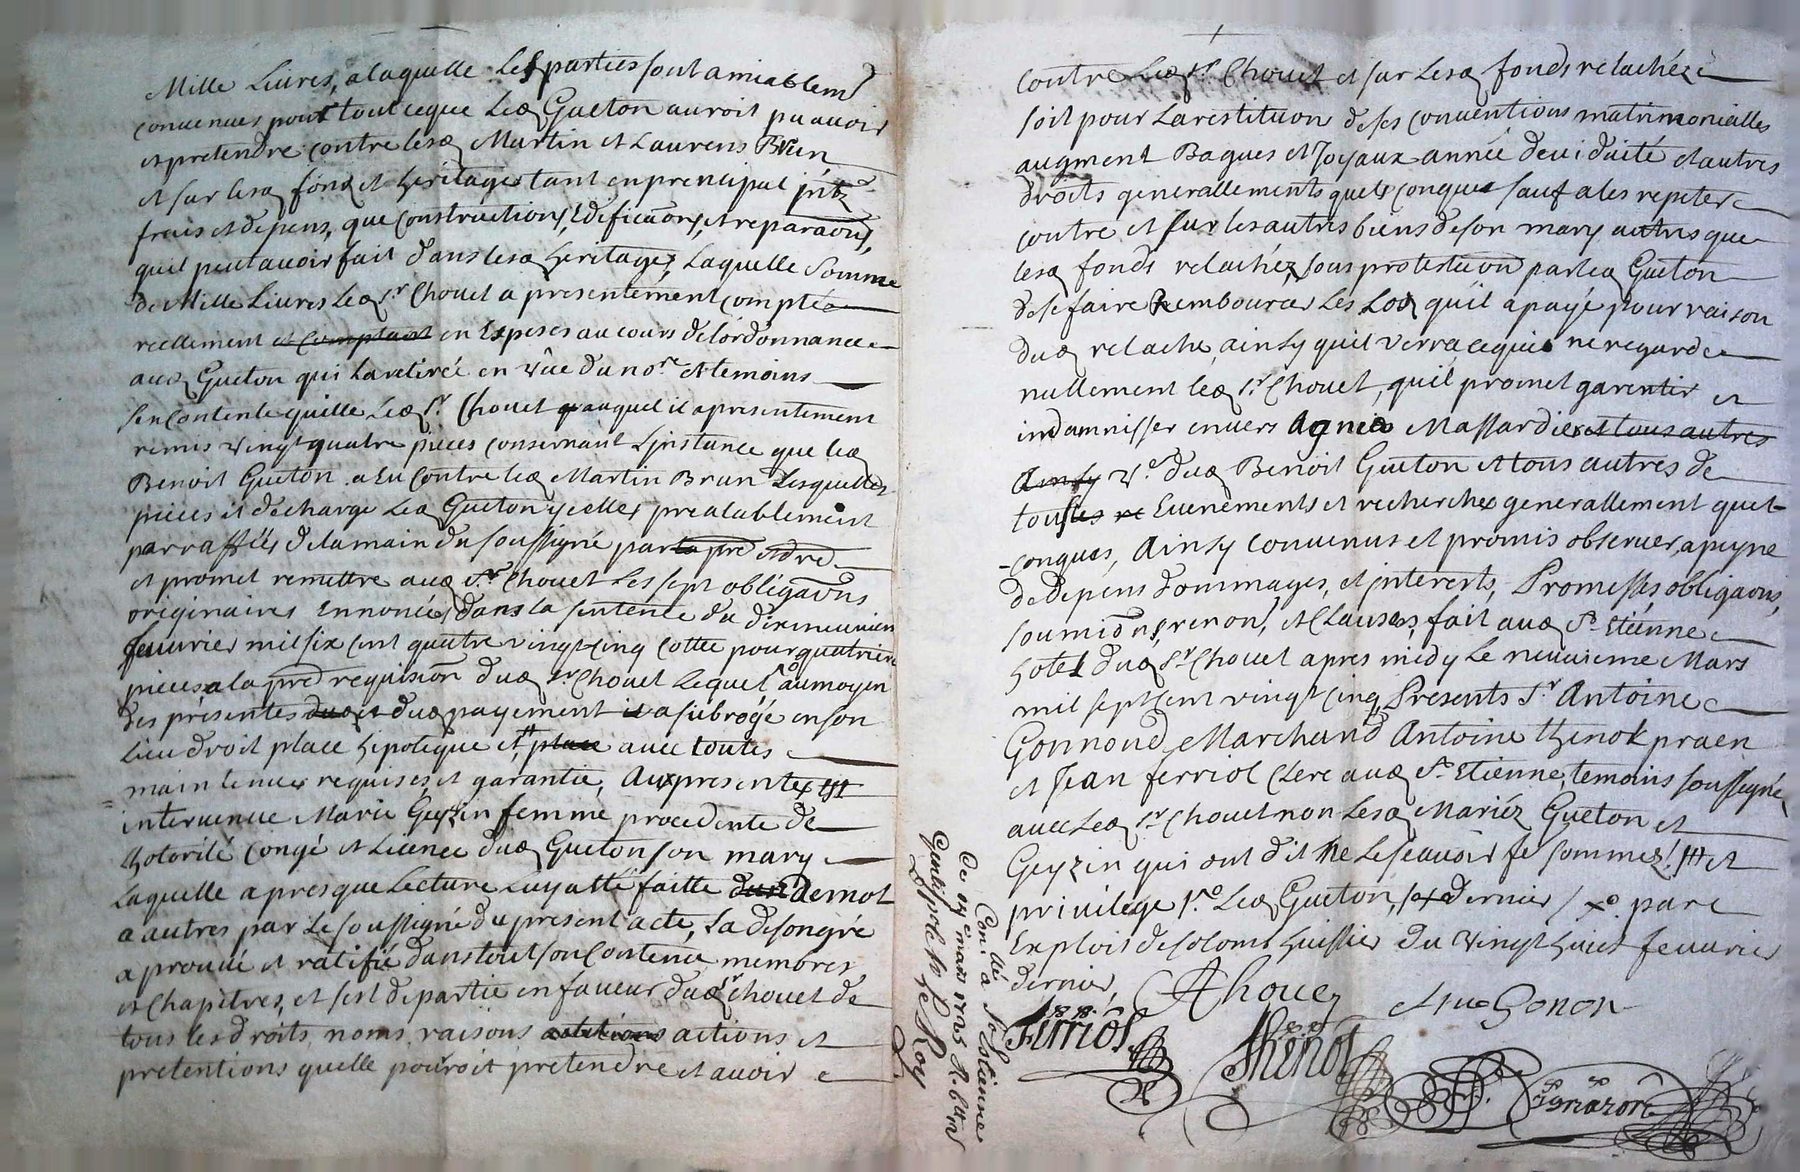 Mille Livres, a laquelle les parties sont amiablemt
convenues pour tout ce que led Gueton auroit pu avoir
et pretendre contre lesd Martin et Laurens Brun
et sur lesd fonds et heritages tant en prencipal intz
frais et depens, que constructions, edificaons, et reparaons,
quil peut avoir fait dans lesd heritages, Laquelle Somme
de Mille Livres Led Sr Chouet a presentement comptée
reellement et comptant en Espeses au cours de lordonnance
aud Gueton qui la retirée en vüe du nore et temoins
sen contente quitte Led Sr Chouet auquel il a presentement
remis vingt quatre pieces consernant Linstance que led
Benoit Gueton a eu contre led Martin Brun Lesquelles
pieces et decharge Led Gueton ycelles prealablement
parraffées de la main du soussigné
et promet remettre aud Sr Chouet Les sept obligaons
originaires ennoncées dans la sentence du dixneuvieme
fevrier mil six cent quatre vingt cinq cottée pour quatrieme
pieces a la pred requision dud Sr Chouet Lequel au moyen
des présentes dud et dud payement il a subrogé en son
Lieu droit place hipoteque et place avec toutes
main tenues requises, et garantie, Aux presentes est
intervenue Marie Geyzin femme procedente de
Lotorité congé et Licence dud Gueton son mary
Laquelle apres que Lecture luy a été faitte de mot
a autres par Le soussigné du present acte, La de son gré
aprouvé et ratifié dans tout son Contenu memores
et Chapitres, et sest departie en faveur dud Sr Chouet de
tous les droits noms raisons actions et
pretentions quelle pouroit pretendre et avoir
contre Led Sr Chouet et sur Lesd fonds relachéz
soit pour La restitution de ses conventions matrimonialles
augment Bagues et Joyaux année de viduité et autres
droits generallements quels conques sauf a les repeter
contre et sur les autres biens de son mary autres que
lesd fonds relachéz, sous protestuon par led Gueton
de se faire Rembource Les Lod quil a payé pour raison
dud relache, ainsy quil verra ce qui ne regarde
nullement led Sr Chouet, quil promet garentir et
indamnisser envers Agnie Massardier et tous autres
Ainsy Ve dud Benoit Gueton et tous autres de
toustes re Evenements et recherches generallement quel-
-conques, Ainsy convenus et promis observer, a peyne
de depens dommages, et jnterests, Promesses, obligaons,
soumions, renon, et Clauses, fait aud St Etienne
hotel dud Sr Chouet apres midy Le neuvieme Mars
mil sept cent vingt cinq Presents Sr Antoine
Gonnond Marchand Antoine thenot praen
et Jean ferriol Clerc aud St Etienne, temoins soussignés
avec Led Sr Chouet non Lesd Mariéz Gueton et
Geyzin qui ont dit ne le scavoir de sommez. et
privilege Led Gueton, dernier par
Exploit de Colomb huissier du vingt huit fevrier
dernier,
AChouet
Ferriol
Thenot
Con llé a St Etienne
Ce 14e mars 1725 R. 6
Gaultier pr le Sr Le Roy